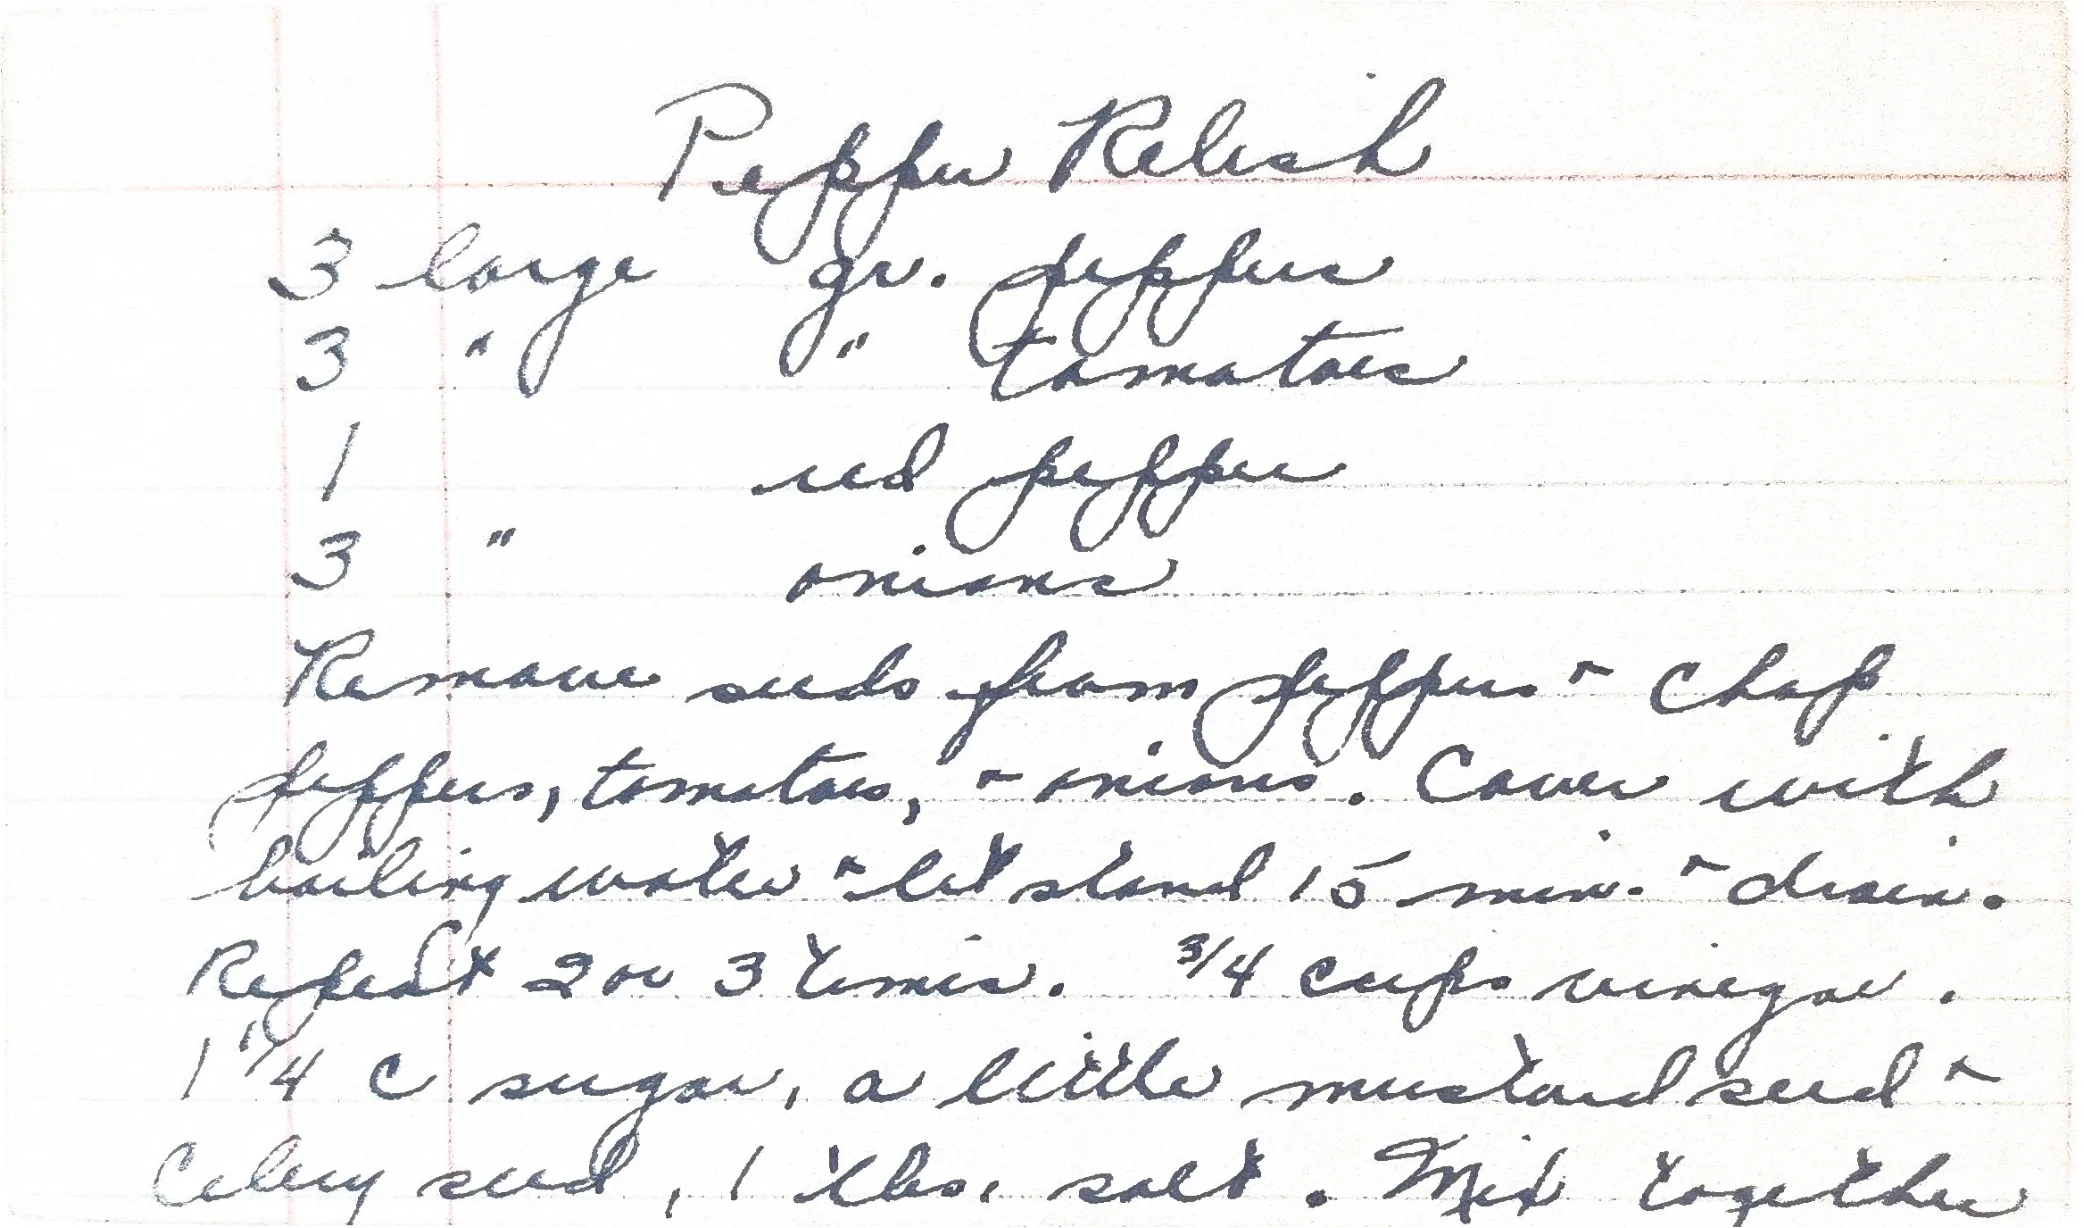 Pepper Relish
3 large gr. peppers
3 " " tomatoes
1 red pepper
3 " onions
Remove seeds from peppers & chop
peppers, tomatoes, & onions. Cover with
boiling water & let stand 15 min. & drain.
Repeat 2 or 3 times. 3/4 cups vinegar.
1 1/4 C sugar, a little mustard seed &
Celery seed, 1 tbs. salt. Mix together